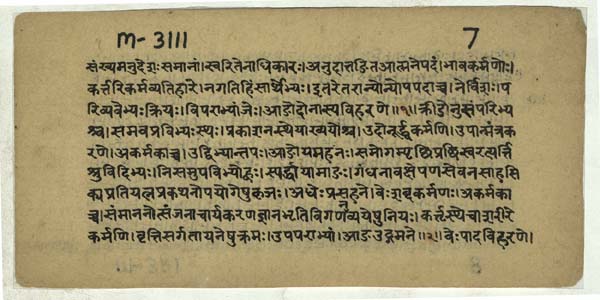 m-3111
7
संख्यमनुदेशः समानां।स्वरितेनाधिकारः।अनुदात्तङित आत्मनेपदं।भावकर्मणोः।
कर्त्तरि कर्मव्यतिहारे।न गतिहिंसार्थेभ्यः।इतरेतरान्योन्योपपदाच्च।नेर्विशः।प
रिव्यवेभ्यः क्रियः।विपराभ्यां जेः।आङो दोनास्यविहरणे॥१॥क्रीडोनुसंपरिभ्य
श्च।समवप्रविभ्यः स्थः।प्रकाशनस्थेयाख्ययोश्च।उदोनूर्द्ध्वकर्मणि।उपान्मंत्रक
रणे।अकर्मकाच्च।उद्विभ्यान्तपः।आङो यमहनः।समो गम्यृच्छिप्रच्छिस्वरत्यर्त्ति
श्रुविदिभ्यः।निसमुपविभ्यो ह्वः।स्पर्द्धायामाङः।गंधनावक्षेपणसेवनसाहसि
क्यप्रतियत्नप्रकथनोपयोगेषु कृञः।अधेः प्रसहने।वेः शब्दकर्मणः।अकर्मका
च्च।संमाननोत्संजनाचार्यकरणज्ञानभृतिविगणनव्ययेषु नियः।कर्त्तृस्थे चाशरीरे
कर्मणि।वृत्तिसर्गतायनेषु क्रमः।उपपराभ्यां।आङ उद्गमने॥२॥वेः पादविहरणे।